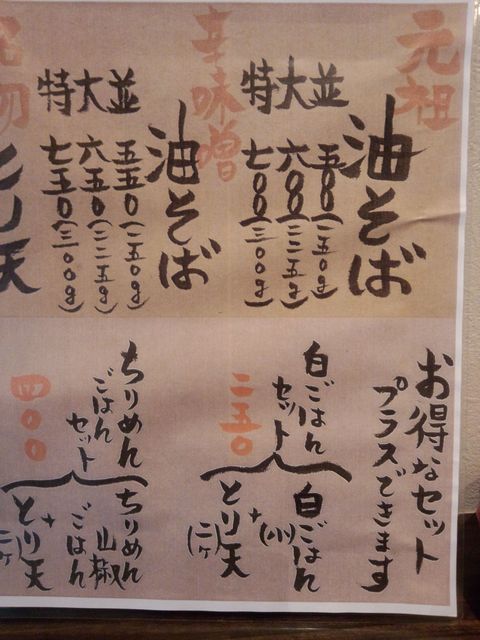 元祖
油そば
並 五〇〇(一五〇g)
大 六〇〇(二二五g)
特 七〇〇(三〇〇g)
辛味噌
油そば
並 五五〇(一五〇g)
大 六五〇(二二五g)
特 七五〇(三〇〇g)
名物
とり天
お得なセット
プラスできます
白ごはん
セット
二五〇
白ごはん
(小)
+
とり天
(二ヶ)
ちりめん
ごはん
セット
四〇〇
ちりめん
山椒
ごはん
+
とり天
(二ヶ)